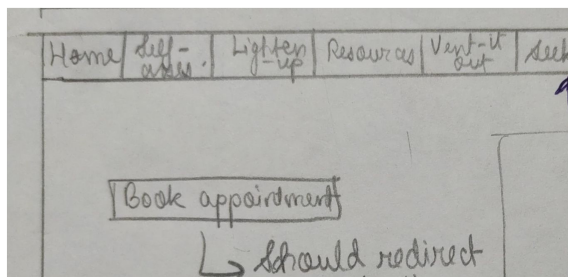 Home
Self-
asses.
Lighten
-up
Resources
Vent-it
out
Seek
Book appointment
Should redirect